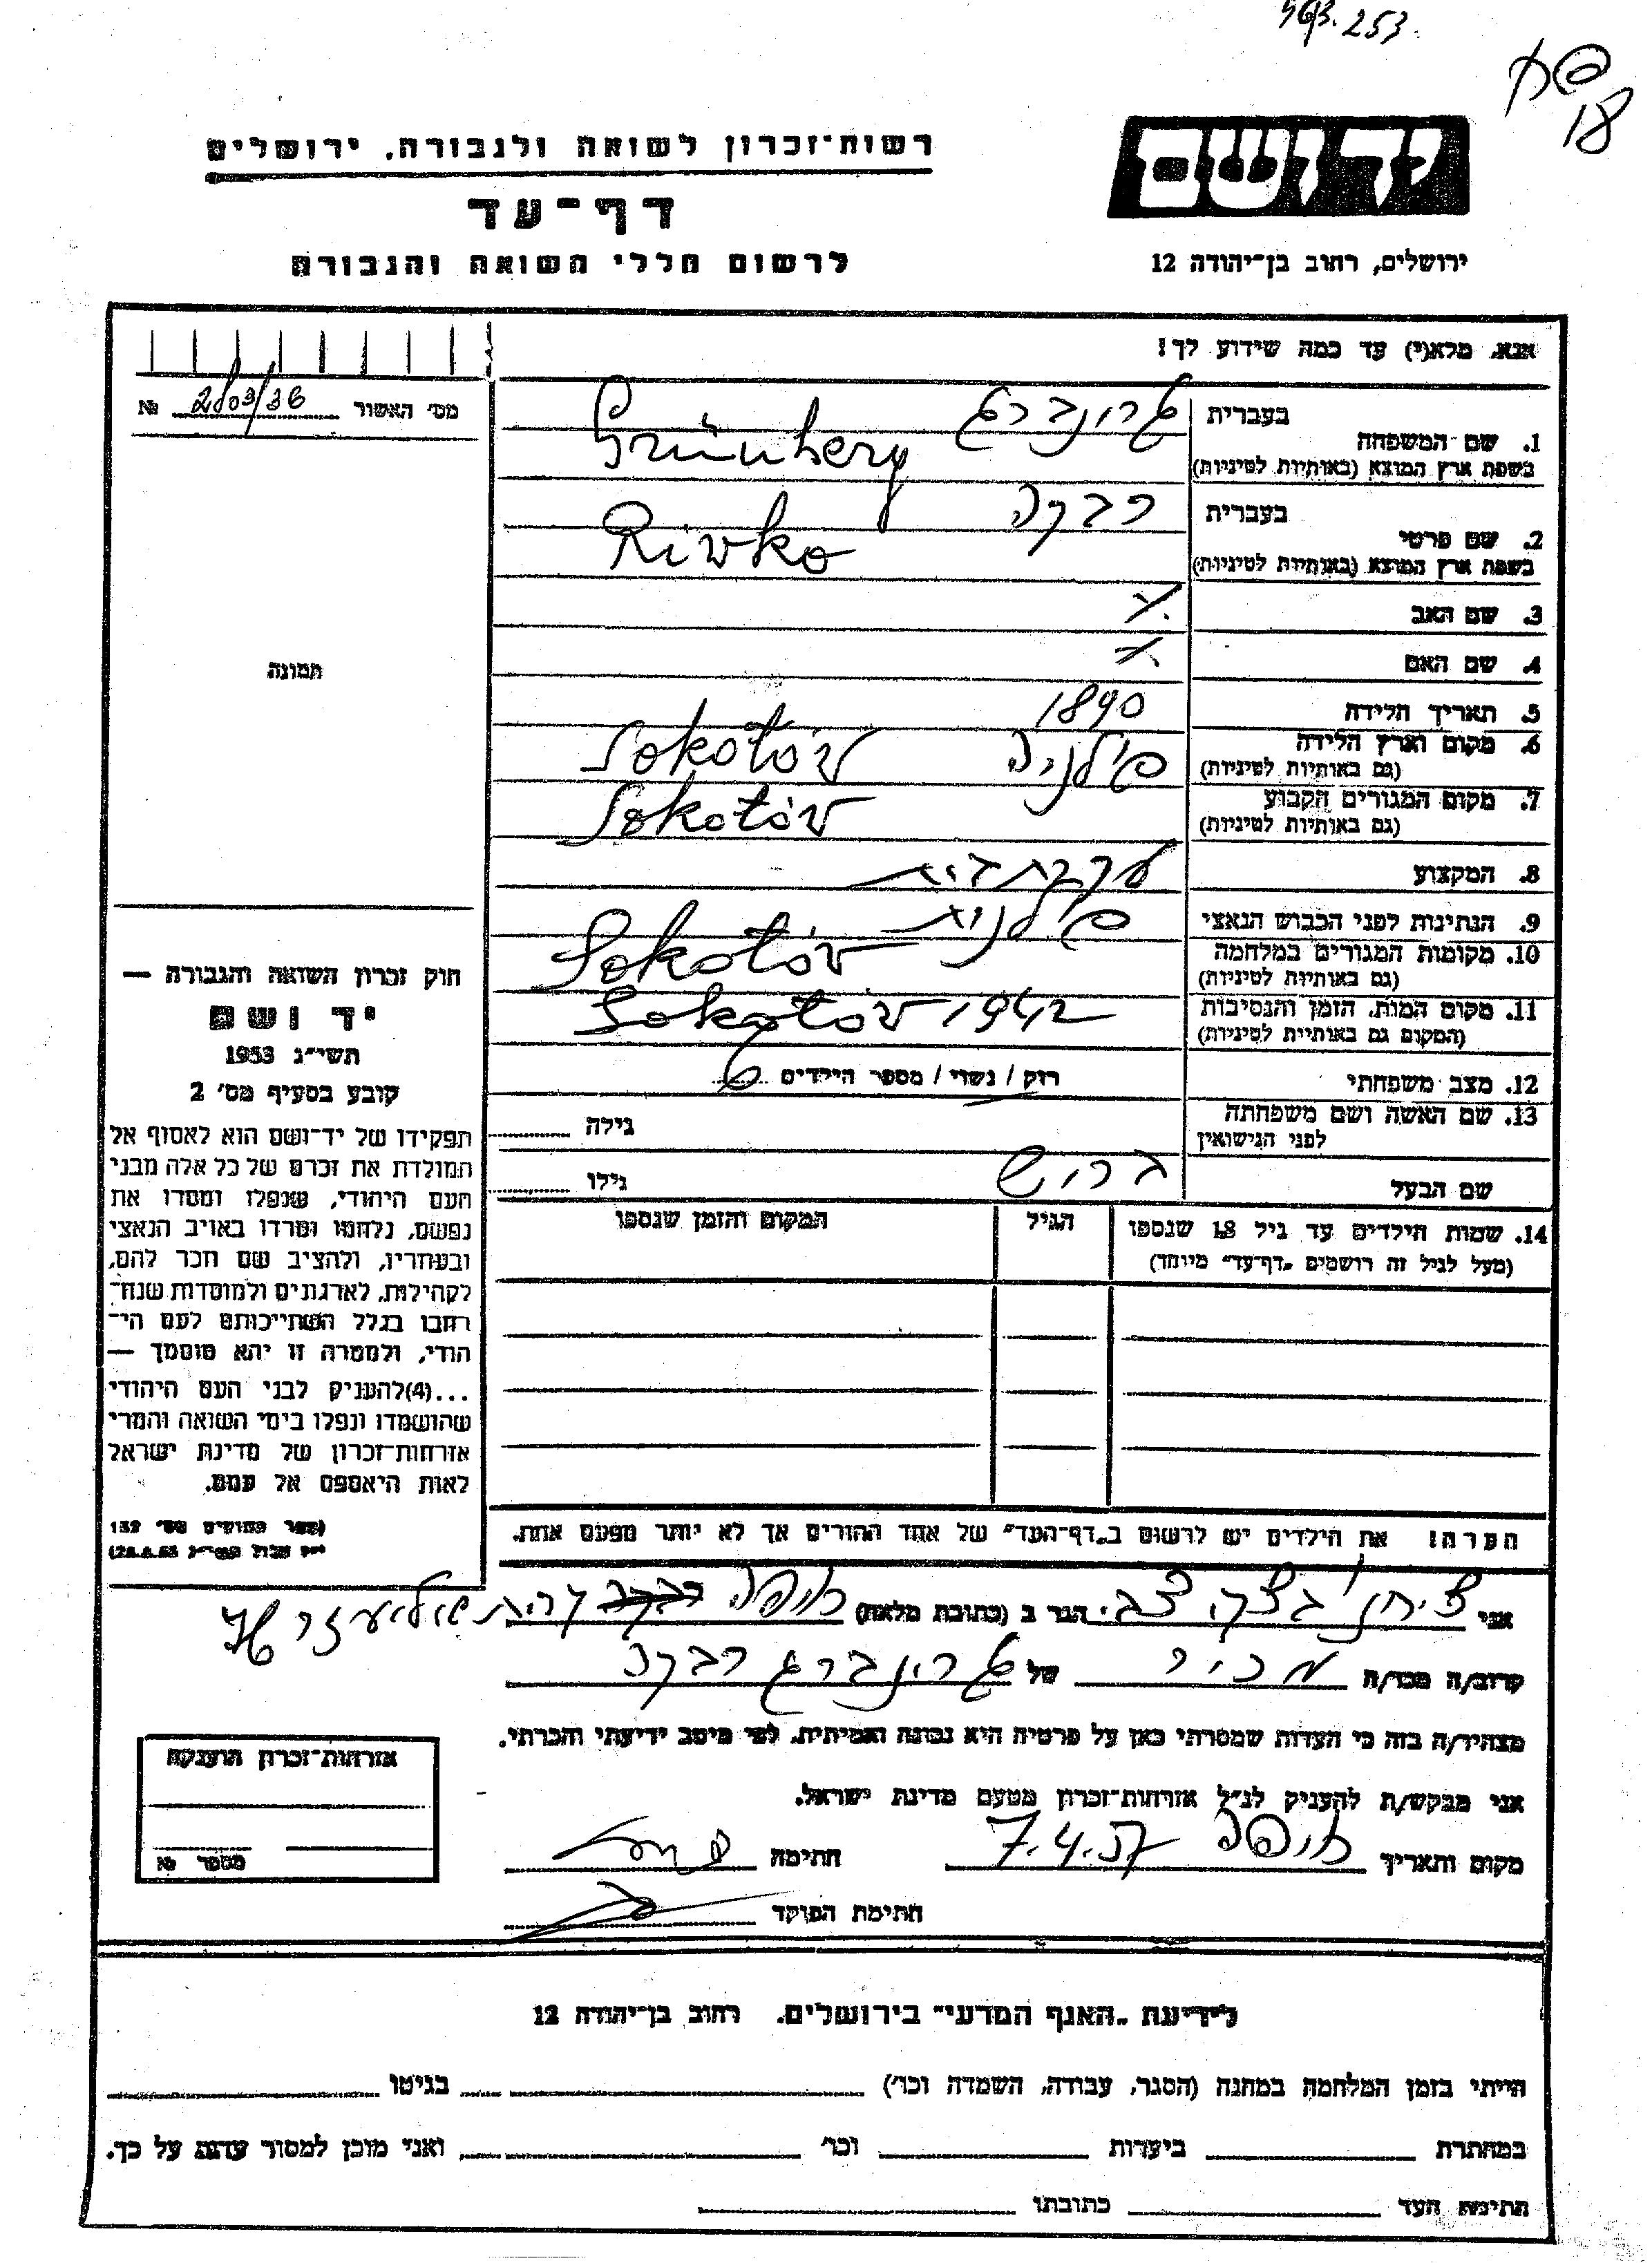 253.
18
רשות־זכרון לשואה ולגבורה, ירושלים
דף־עד
לרשום חללי השואה והגבורה
יד ושם
ירושלים, רחוב בן־יהודה 12
אנא, מלא(י) עד כמה שידוע לך!
מס׳ האשור 2103/36 №
תמונה
בעברית גרונברג
1. שם המשפחה
בשפת ארץ המוצא (באותיות לטיניות) Grünberg
בעברית רבקה
2. שם פרטי
בשפת ארץ המוצא (באותיות לטיניות) Riwka
3. שם האב
4. שם האם
5. תאריך הלידה 1890
6. מקום וארץ הלידה
(גם באותיות לטיניות) פולניה Sokołów
7. מקום המגורים הקבוע
(גם באותיות לטיניות) Sokołów
8. המקצוע עקרת בית
9. הנתינות לפני הכבוש הנאצי פולנית
10. מקומות המגורים במלחמה
(גם באותיות לטיניות) Sokołów
11. מקום המות, הזמן והנסיבות
(המקום גם באותיות לטיניות) Sokołów 1942
12. מצב משפחתי רוק / נשוי / מספר הילדים 6
13. שם האשה ושם משפחתה
לפני הנישואין גילה
שם הבעל ברוש גילו
14. שמות הילדים עד גיל 18 שנספו הגיל המקום והזמן שנספו
(מעל לגיל זה רושמים „דף־עד״ מיוחד)
חוק זכרון השואה והגבורה —
יד ושם
תשי״ג 1953
קובע בסעיף מס׳ 2
תפקידו של יד־ושם הוא לאסוף אל
המולדת את זכרם של כל אלה מבני
העם היהודי, שנפלו ומסרו את
נפשם, נלחמו ומרדו באויב הנאצי
ובעוזריו, ולהציב שם וזכר להם,
לקהילות, לארגונים ולמוסדות שנח־
רבו בגלל השתייכותם לעם הי־
הודי, ולמטרה זו יהא מוסמך —
...(4)להעניק לבני העם היהודי
שהושמדו ונפלו בימי השואה והמרי
אזרחות־זכרון של מדינת ישראל
לאות היאספם אל עמם.
(ספר החוקים מס׳ 132
הערה! את הילדים יש לרשום ב„דף־העד״ של אחד ההורים אך לא יותר מפעם אחת.
אני צבי הגר ב (כתובת מלאה) חיפה קרית אליעזר
קרוב/ה מכר/ה מכיר של גרינברג רבקה
מצהיר/ה בזה כי העדות שמסרתי כאן על פרטיה היא נכונה ואמיתית, לפי מיטב ידיעתי והכרתי.
אני מבקש/ת להעניק לנ״ל אזרחות־זכרון מטעם מדינת ישראל.
מקום ותאריך חיפה 7.4.57 חתימה
חתימת הפוקד
אזרחות־זכרון הוענקה
מספר №
לידיעת „האגף המדעי״ בירושלים, רחוב בן־יהודה 12
הייתי בזמן המלחמה במחנה (הסגר, עבודה, השמדה וכו׳) בגיטו
במחתרת ביערות וכו׳ ואני מוכן למסור עדות על כך.
חתימת העד כתובתו